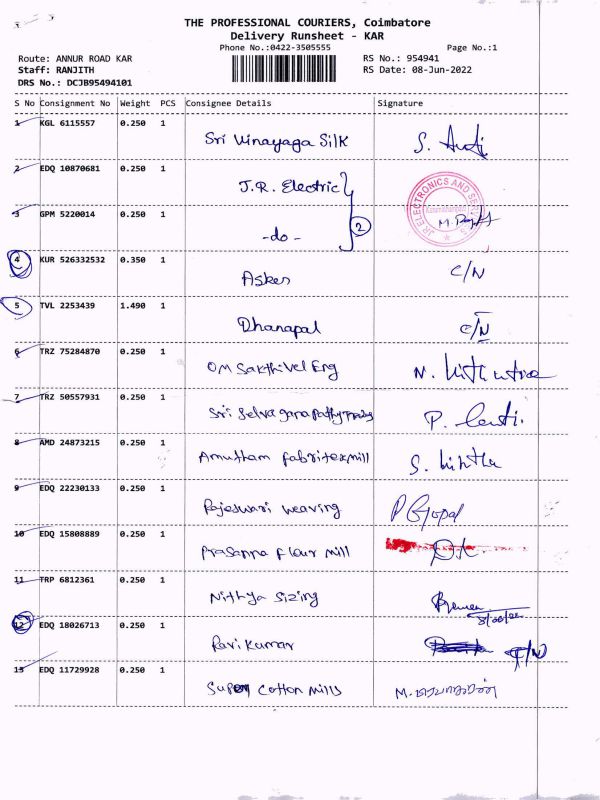 THE PROFESSIONAL COURIERS, Coimbatore
Delivery Runsheet - KAR
Phone No.:0422-3505555
Page No.:1
Route: ANNUR ROAD KAR
RS No.: 954941
Staff: RANJITH
RS Date: 08-Jun-2022
DRS No.: DCJB95494101
S No Consignment No Weight PCS Consignee Details Signature
1 KGL 6115557 0.250 1
Sri Vinayaga Silk S.
2 EDQ 10870681 0.250 1
J.R. Electric
JR ELECTRONICS AND
3 GPM 5220014 0.250 1
2
-do-
4 KUR 526332532 0.350 1
Asker C/N
5 TVL 2253439 1.490 1
Dhanapal C/N
6 TRZ 75284870 0.250 1
OM Sakthivel Eng N.
7 TRZ 50557931 0.250 1
Sri Selva ganapathy P.
8 AMD 24873215 0.250 1
Amutham fabritexmill S.
9 EDQ 22230133 0.250 1
Rajeswari weaving P Gopal
10 EDQ 15808889 0.250 1
Prasanna flour mill
11 TRP 6812361 0.250 1
Nithya Sizing
12 EDQ 18026713 0.250 1
Ravi Kumar
13 EDQ 11729928 0.250 1
Super cotton mills M.